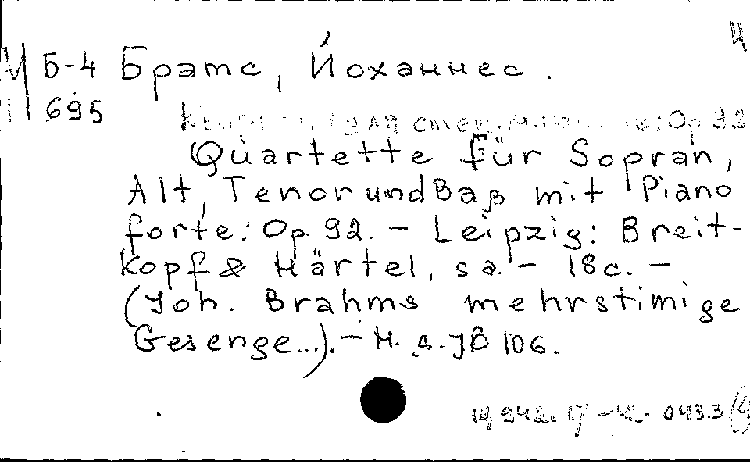 Ц
М Б-4 Брамс, Йоханнес.
695
Op 92
Quartette für Sopran,
Alt, Tenor und Baß mit Piano
forte: Op. 92. - Leipzig: Breit-
kopf & Härtel, s a. - 18 c. -
(Joh. Brahms mehrstimige
Gesenge...). - Н. д. JB 106.